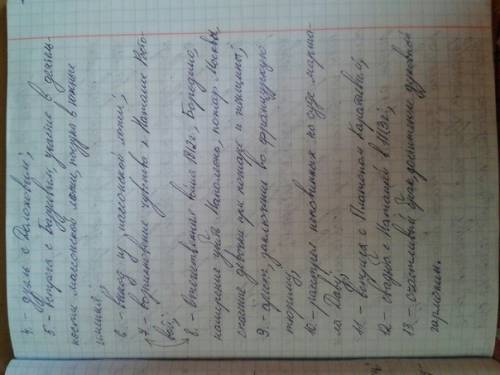 4. - дуэль с Долоховым;
5 - встреча с Баздеевым, участие в деятель-
ности масонской ложи, поездка в южные
имения;
6 - выход из масонской ложи;
7 - возникновение чувства к Наташе Росто-
вой;
8. - отечественная война 1812г., Бородино,
намерение убить Наполеона, пожар Москвы,
спасение девочки при пожаре и женщины;
9. - арест, заключение во французскую
тюрьму;
10. - расстрел невиновных по суде марша-
ла Даву;
11 - встреча с Платоном Каратаевым;
12 - свадьба с Наташей в 1813г;
13. - счастливый брак, достижение духовной
гармонии.